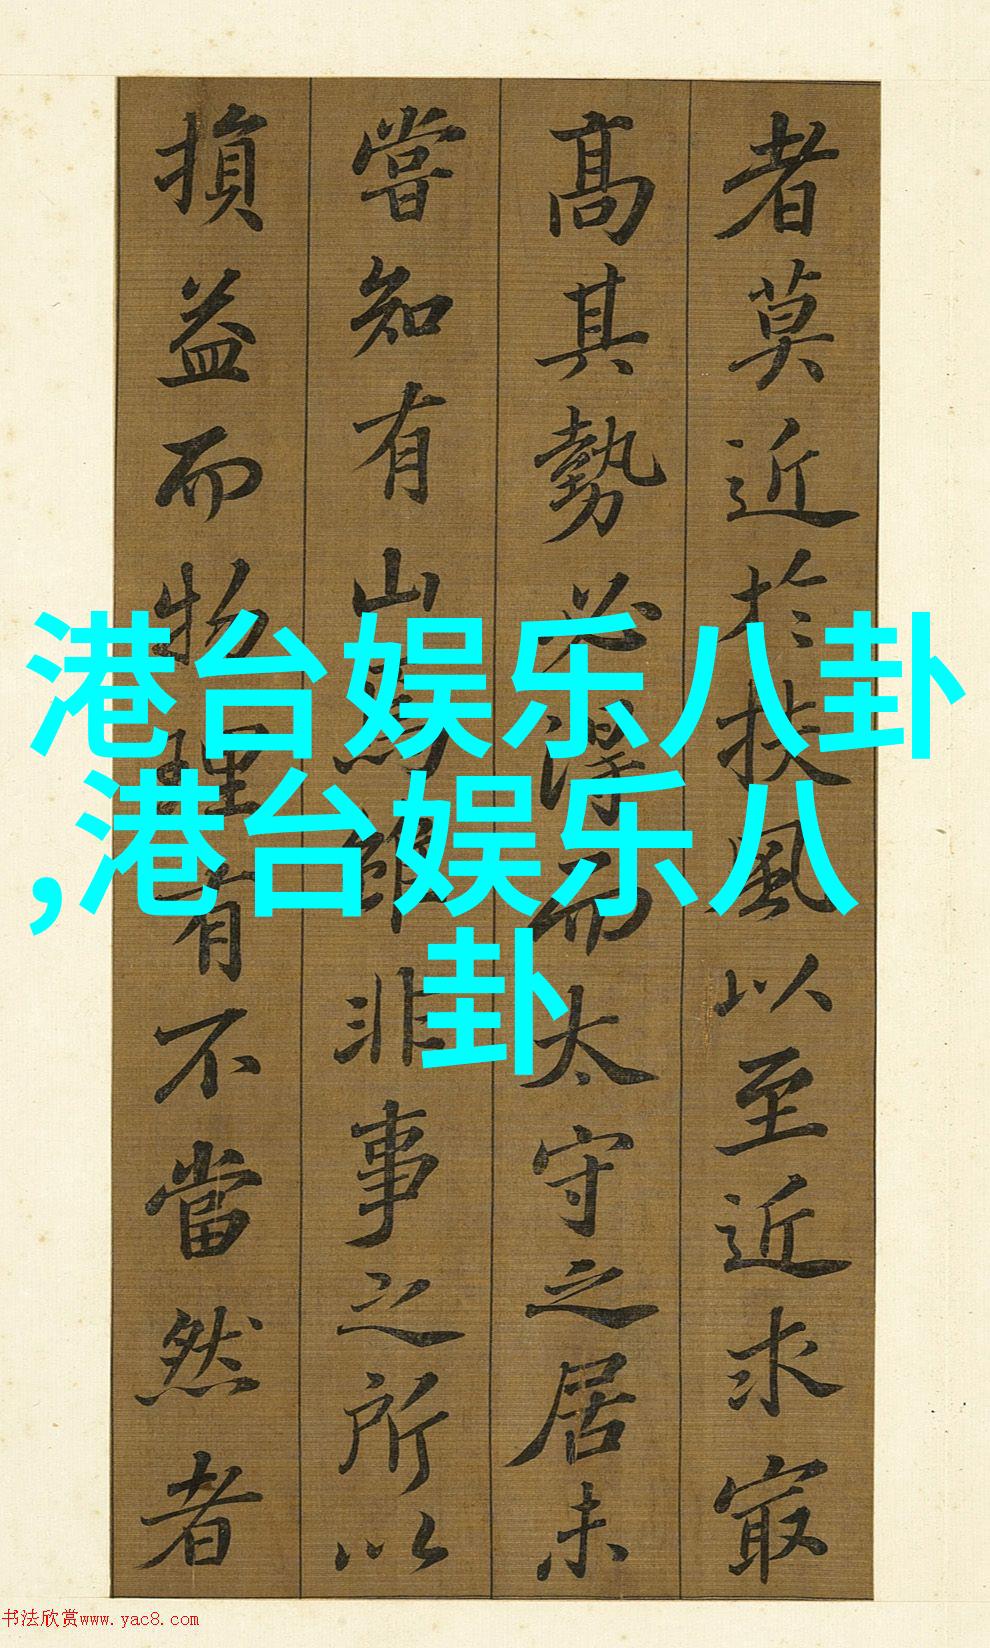 者莫近於扶風以至近求冣
髙其勢必得而太守之居未
嘗知有山焉雖非事之所以
損益而物理有不當然者
港台娱乐八卦
,港台娱乐八
卦
书法欣赏www.yac8.com